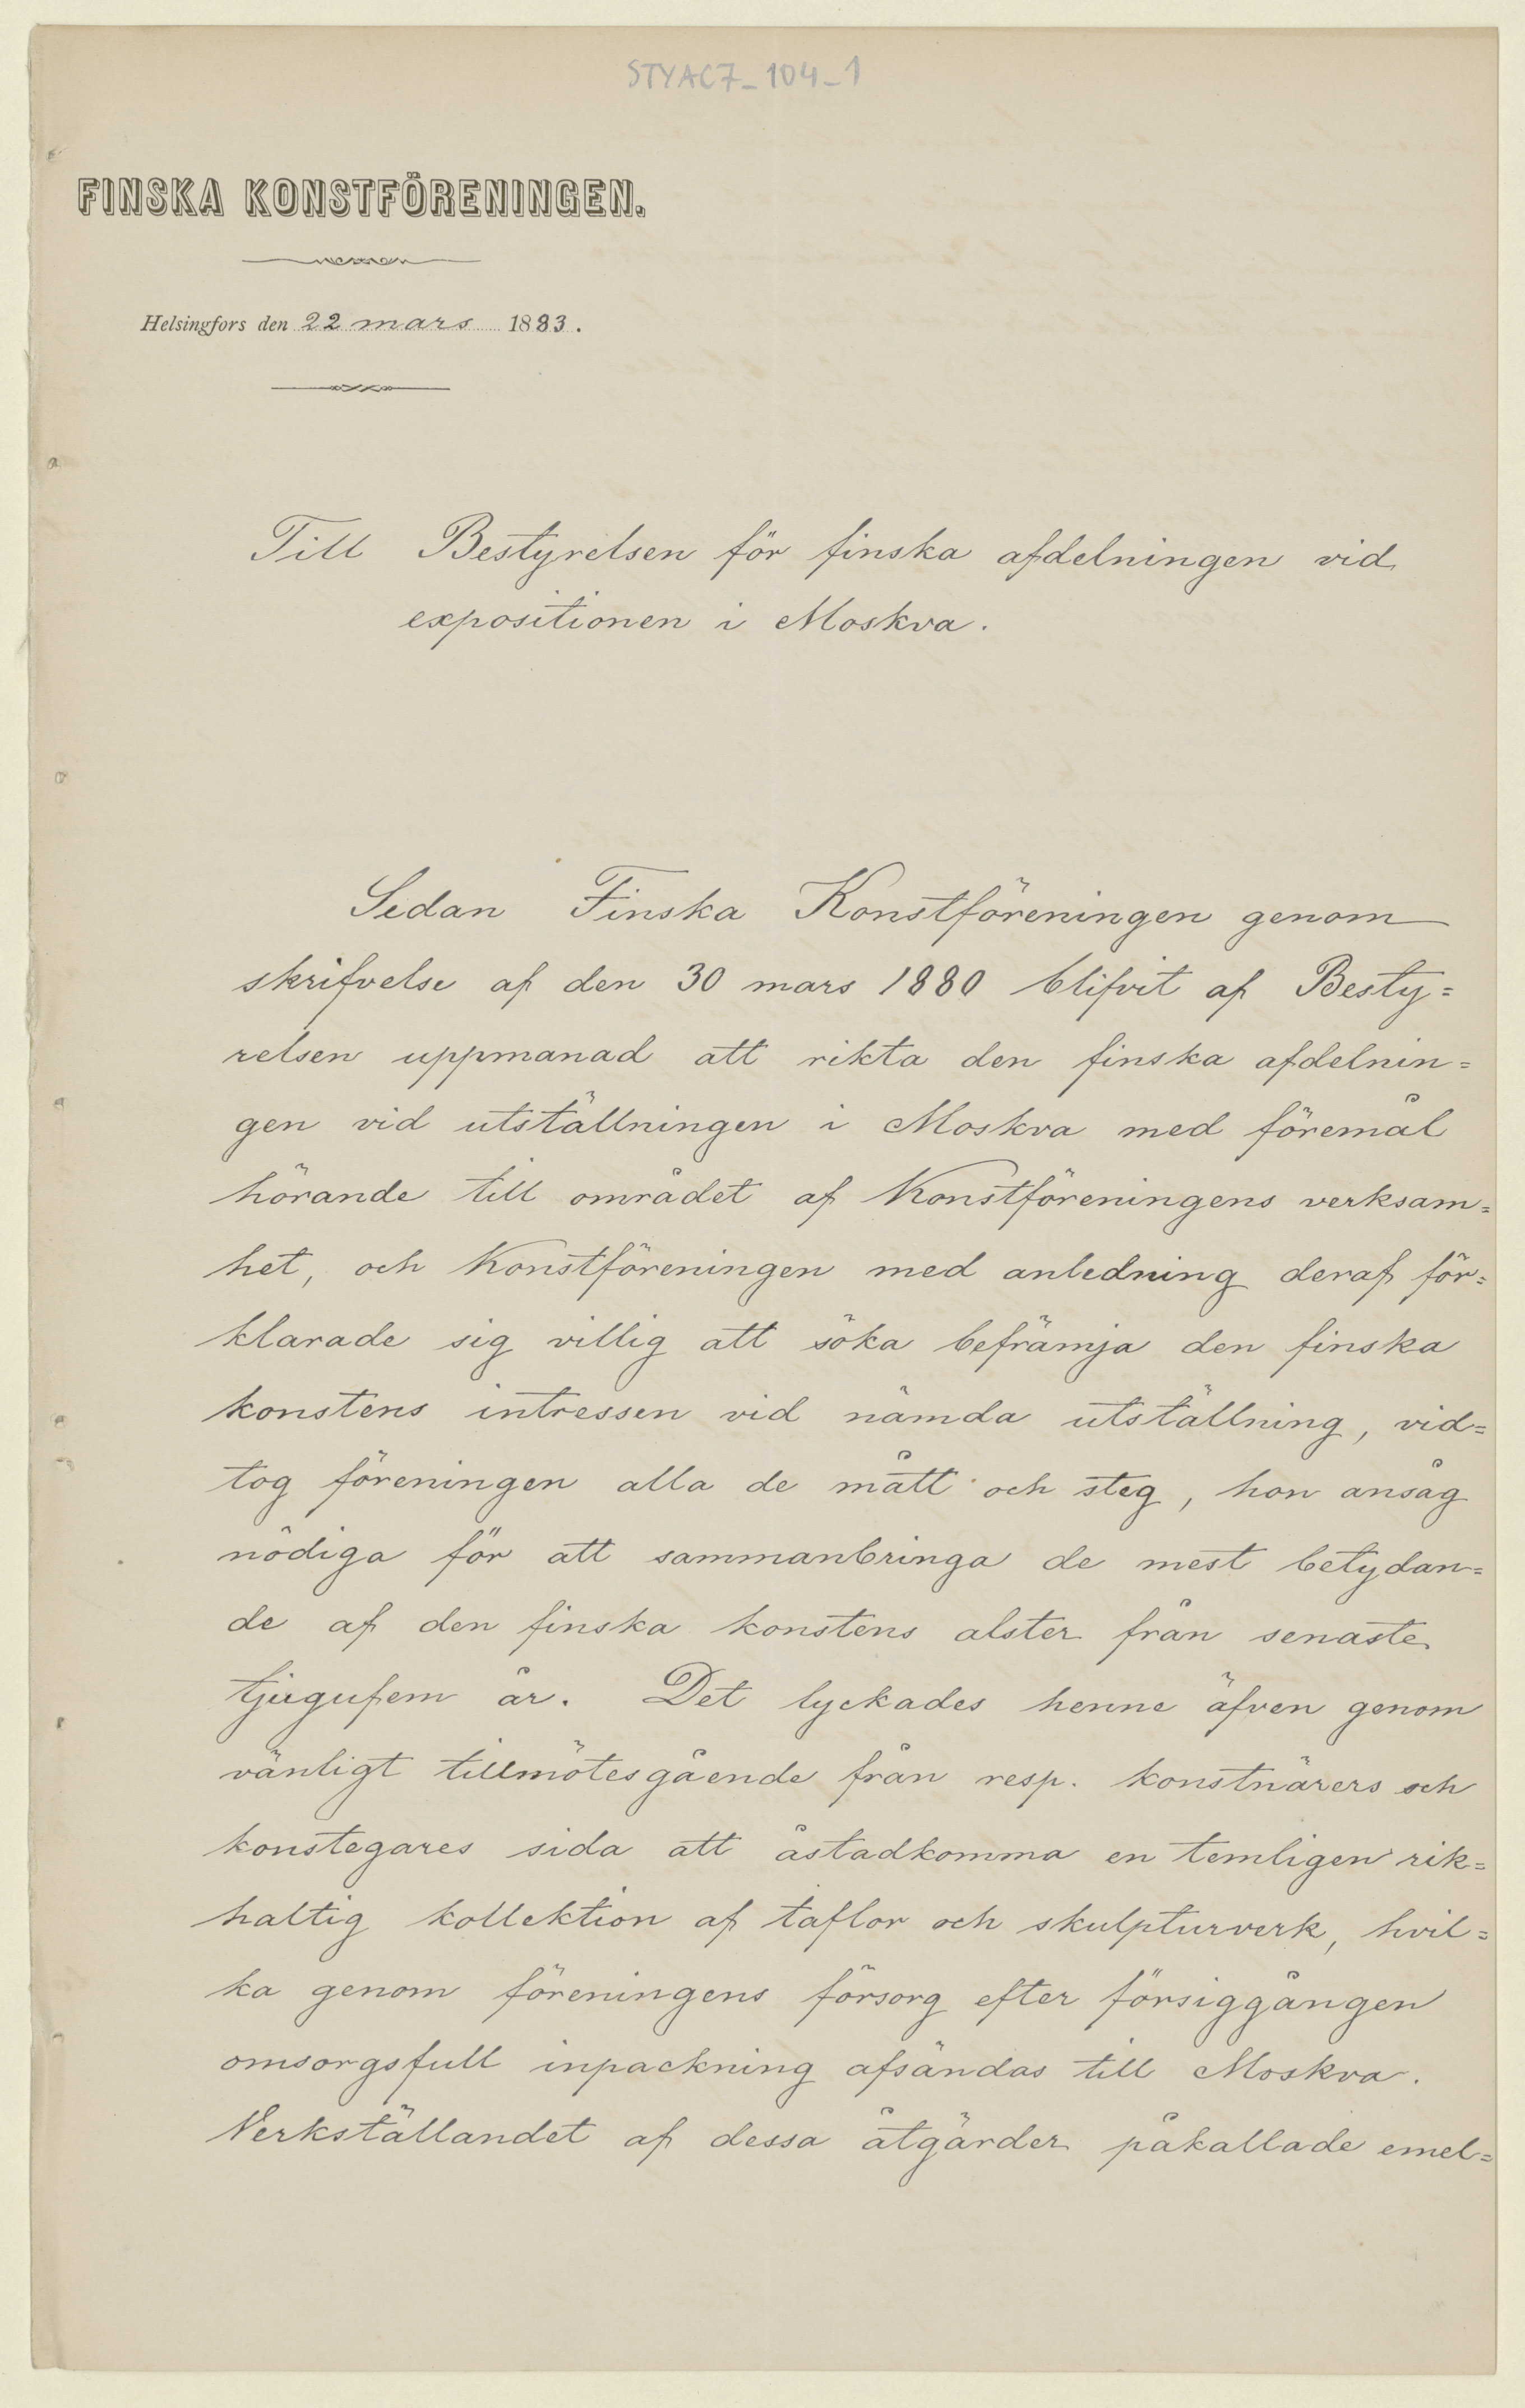 STYAC7_104_1
FINSKA KONSTFÖRENINGEN.
Helsingfors den 22 mars 1883.
Till Bestyrelsen för finska afdelningen vid
expositionen i Moskva.
Sedan Finska Konstföreningen genom
skrifvelse af den 30 mars 1880 blifvit af Besty=
relsen uppmanad att rikta den finska afdelnin=
gen vid utställningen i Moskva med föremål
hörande till området af Konstföreningens verksam=
het, och Konstföreningen med anledning deraf för=
klarade sig villig att söka befrämja den finska
konstens intressen vid nämda utställning, vid=
tog föreningen alla de mått och steg, hon ansåg
nödiga för att sammanbringa de mest betydan=
de af den finska konstens alster från senaste
tjugufem år. Det lyckades henne äfven genom
vänligt tillmötesgående från resp. konstnärers och
konstegares sida att åstadkomma en temligen rik=
haltig kollektion af taflor och skulpturverk, hvil=
ka genom föreningens försorg efter försiggången
omsorgsfull inpackning afsändas till Moskva.
Verkställandet af dessa åtgärder påkallade emel=